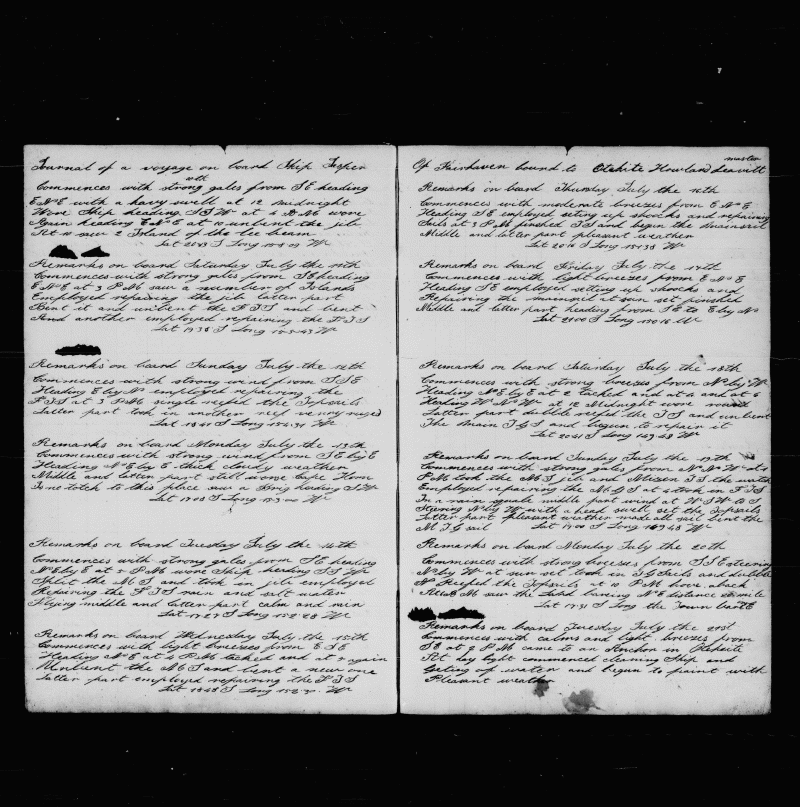 Journal of a voyage on board Ship Jasper
Commences with strong gales from SE heading
ENE with a havy swell at 12 midnight
Wore Ship heading SSW at 4 AM wore
Again heading ENE at 10 unbent the jib
At 10 saw 2 Island of the lee beam
Lat 20 43 S Long W
Remarks on board Saturday July the 11th
Commences with strong gales from SE heading
ENE at 3 PM saw a number of Islands
Employed repairing the jib latter part
Bent it and unbent the F T S and bent
And another employed repairing the F T S
Lat 19 38 S Long W
Remarks on board Sunday July the 12th
Commences with strong wind from SSE
Heading E by N employed repairing the
F T S at 3 PM reefed the Topsails
Latter part took in another reef verry
Lat 18 41 S Long W
Remarks on board Monday July the 13th
Commences with strong wind from SE by E
Heading NE by E thick cloudy weather
Middle and latter part still worse Cape Horn
Is no to this place saw a Brig heading SW
Lat S Long 153 00 W
Remarks on board Tuesday July the 14th
Commences with strong gales from SE heading
NE by E at PM wore Ship heading
Split the M S and took in jib employed
Repairing the F T S rain and salt water
Flying middle and latter part calm and rain
Lat 17 27 S Long W
Remarks on board Wednesday July the 15th
Commences with light breezes from ESE
Heading NE at PM tacked and at again
Unbent the M S and bent a new one
Latter part employed repairing the F T S
Lat 18 48 S Long W
master
Of Fairhaven bound to Otehite Howland Leavitt
Remarks on board Thursday July the 16th
Commences with moderate breezes from ENE
Heading SE employed seting up shocks and repairing
Sails at 3 PM finished T S and begun the mainsail
Middle and latter part pleasant weather
Lat 20 S Long W
Remarks on board Friday July the 17th
Commences with light breezes from ENE
Heading SE employed setting up shocks and
Repairing the mainsail at sun set finished
Middle and latter part heading from SE to E by N
Lat S Long W
Remarks on board Saturday July the 18th
Commences with strong breezes from N by W
Heading NE by E at tacked and at 4 and at 6
Heading at 12 Midnight wore round
Latter part dubble reefd the T S and unbent
The main T G S and begun to repair it
Lat 20 41 S Long 149 48 W
Remarks on board Sunday July the 19th
Commences with strong gales from NNW at
PM took the M S jib and Mizzen T S the watch
Employed repairing the M G S at 4 took in F T S
In a rain squale middle part wind at WSW to S
Stering N by W with a head swell set the topsails
Latter part pleasant weather made all sail bent the
M T G sail Lat 19 00 S Long 149 48 W
Remarks on board Monday July the 20th
Commences with strong breezes from SSE steering
N by W at sun set took in T G Sails and dubble
Reefed the Topsails at 10 PM hove aback
At AM saw the Land baring NE distance mile
Lat 17 31 S Long the Town bart E
Remarks on board Tuesday July the 21st
Commences with calms and light breezes from
SE at 2 PM came to an Anchor in
At day light commenced cleaning Ship and
Geting off water and begun to paint with
Pleasant weather